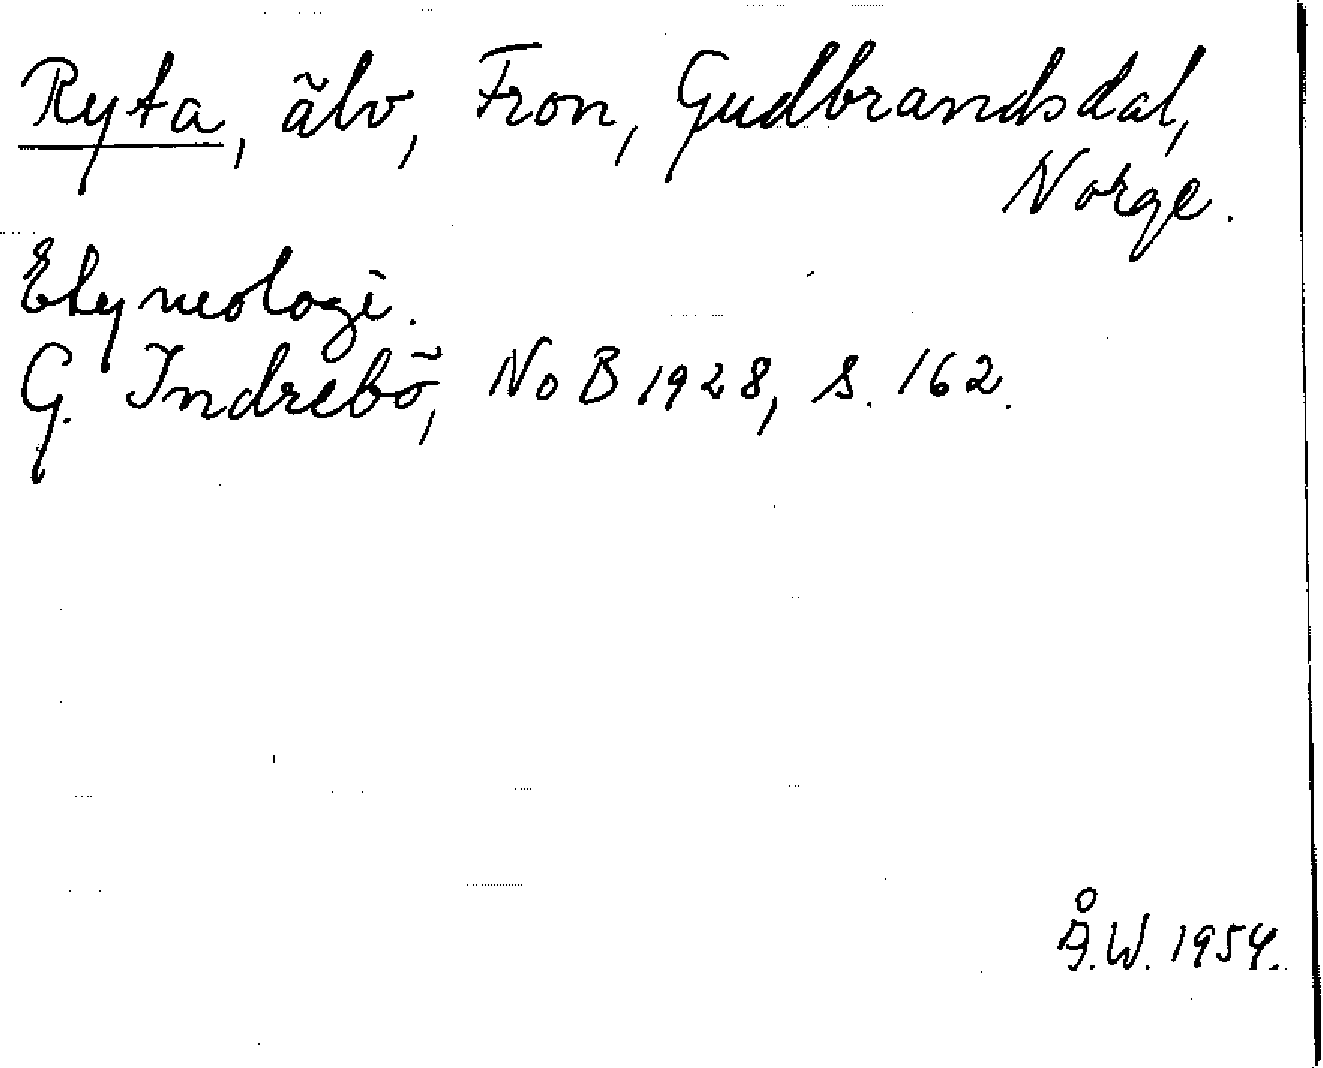 Ryta, älv, Fron, Gudbrandsdal,
Norge.
Etymologi.
G. Indrebö, NoB 1928, s. 162.
Å.W. 1954.